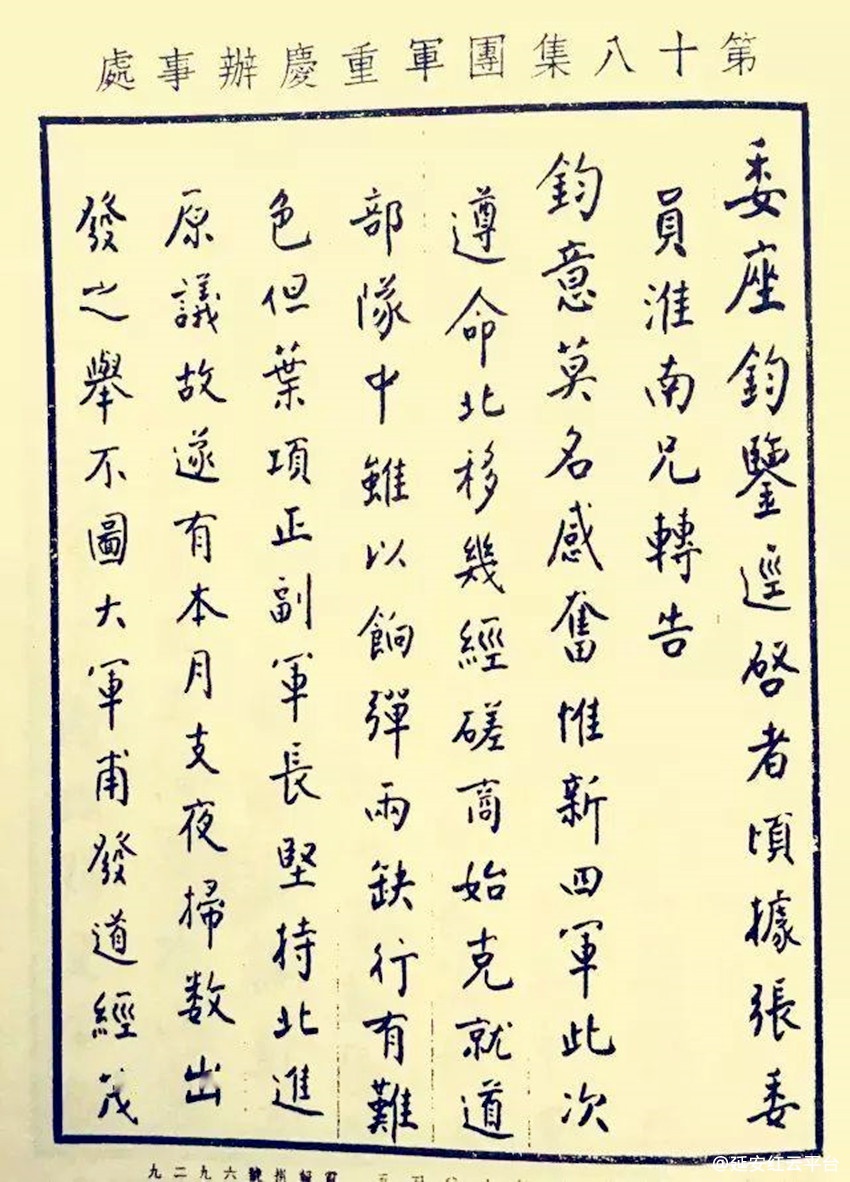 第十八集團軍重慶辦事處
委座鈞鑒逕啓者頃據張委
員淮南兄轉告
鈞意莫名感奮惟新四軍此次
遵命北移幾經磋商始克就道
部隊中雖以餉彈兩缺行有難
色但葉項正副軍長堅持北進
原議故遂有本月支夜掃数出
發之舉不圖大軍甫發道經茂
九二九六號掛報電
@延安红云平台